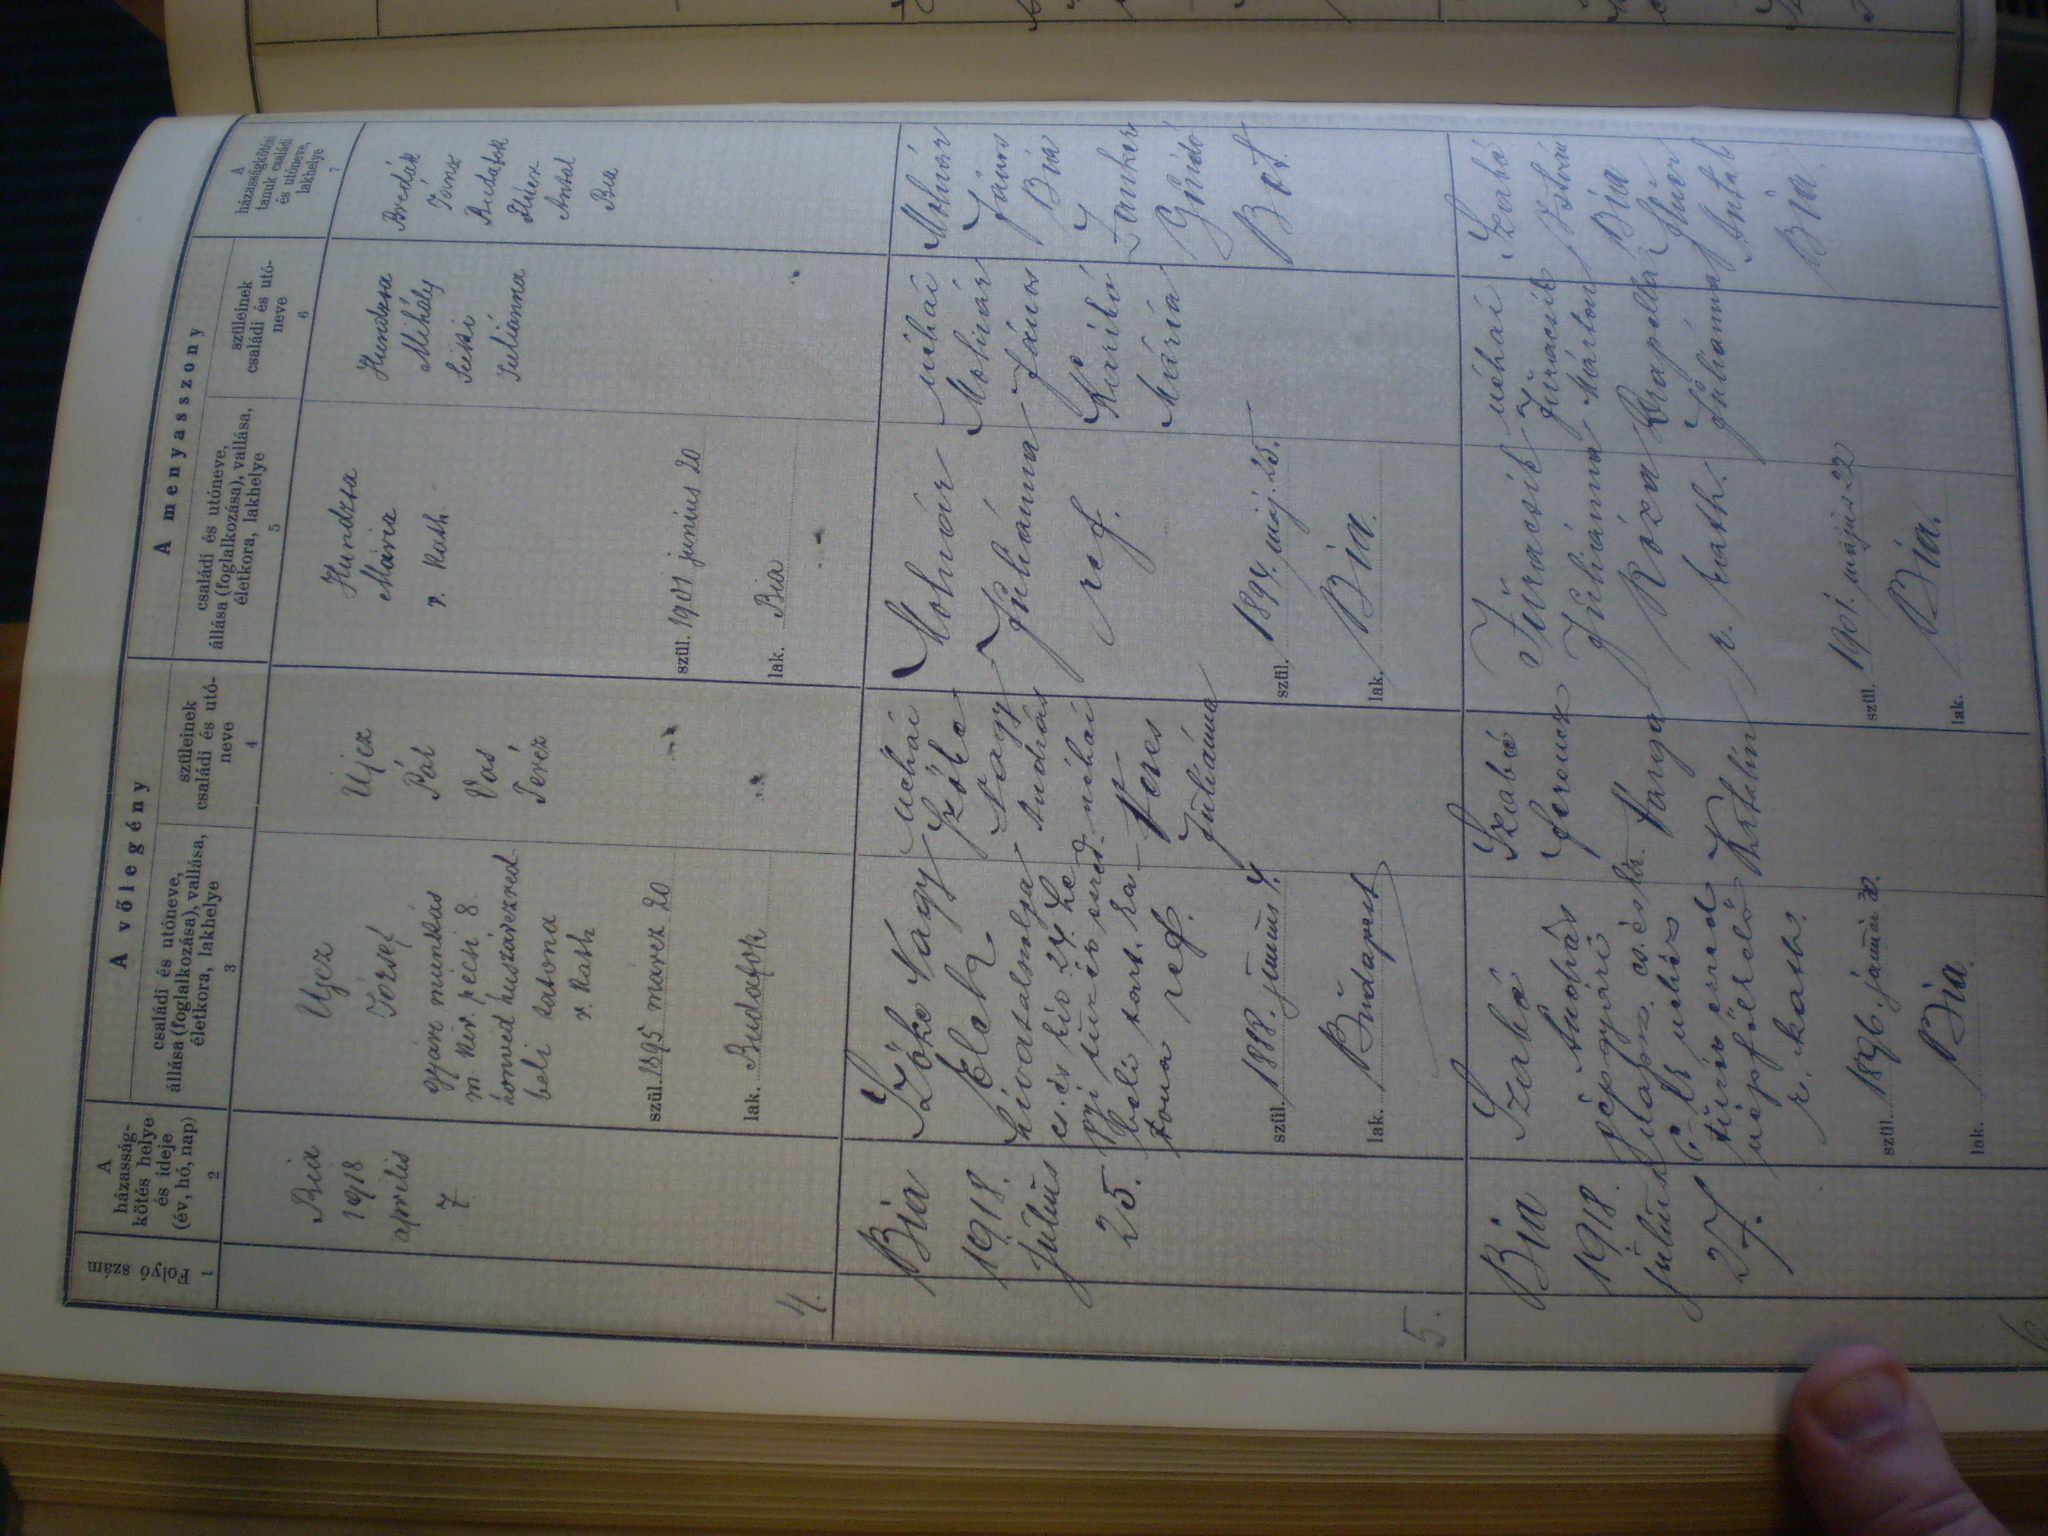 Folyó szám
1
A
házasság-
kötés helye
és ideje
(év, hó, nap)
2
A vőlegény
családi és utóneve,
állása (foglalkozása), vallása,
életkora, lakhelye
3
szüleinek
családi és utó-
neve
4
A menyasszony
családi és utóneve,
állása (foglalkozása), vallása,
életkora, lakhelye
5
szüleinek
családi és utó-
neve
6
A
házasságkötési
tanuk családi
és utóneve,
lakhelye
7
4.
Bia
1918
április
7.
Ujcz
József
gyári munkás
m. kir. pécsi 8.
honvéd huszárezred
beli katona
r. Kath
szül. 1895 márcz 20
lak. Budafok
Ujcz
Pál
Vas
Teréz
Hundzsa
Mária
r. Kath.
szül. 1901 junius 20
lak. Bia
Hundzsa
Mihály
Szüki
Juliánna
Bredák
Budafok
Antal
Bia
5.
Bia
1918.
Julius
25.
Szőke Nagy
Elek
hivatalszolga
cs. és kir.
tona ref.
szül. 1888. junius 4.
lak. Budapest
néhai
Szőke
Nagy
András
néhai
Veres
Juliánna
Molnár
Juliánna
ref.
szül. 1894. máj. 25.
lak. Bia.
néhai
Molnár
János
Karikó
Mária
Molnár
János
Bia
Bot.
6.
Bia
1918.
julius
27.
Szabó
András
gépgyári
cs. és kir.
tüzér ezred
népfölkelő
r. kath.
szül. 1896. január 30.
lak. Bia.
Szabó
Ferencz
Varga
Katalin
Juracsik
Juliánna
Róza
r. kath.
szül. 1901. május 22
lak. Bia.
néhai
Juracsik
Márton
Krapella
Juliánna
Szabó
István
Bia
Antal
Bia.